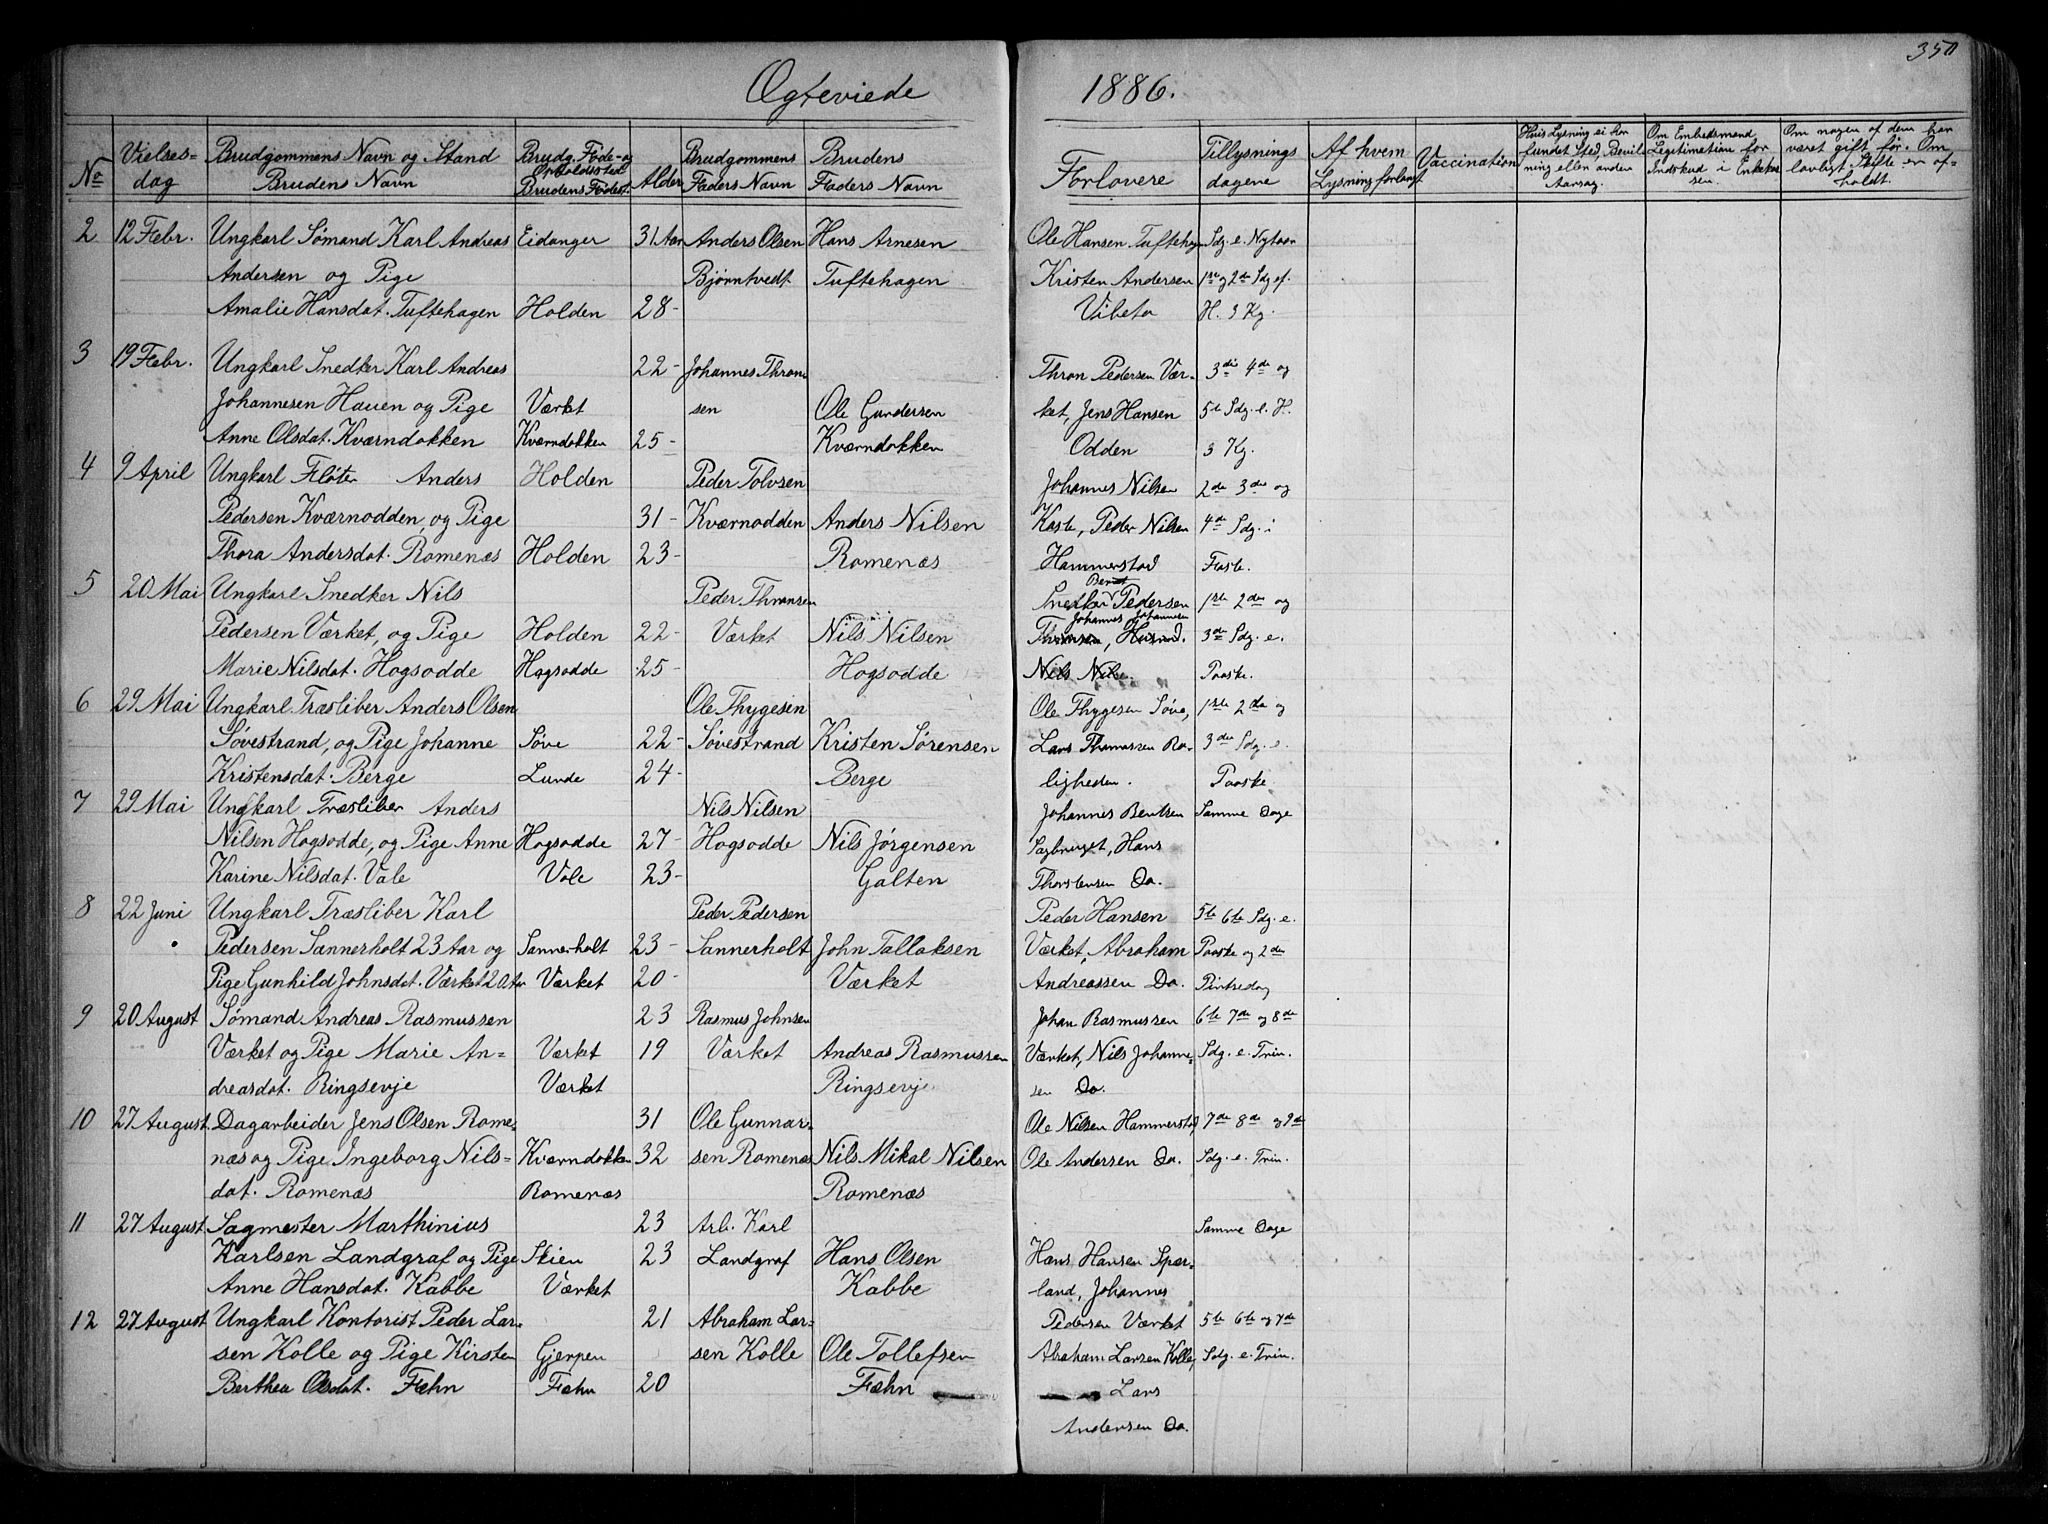 350
Ægteviede 1886.
No
Vielses-
dag
Brudgommens Navn og Stand
Brudens Navn
Brudg. Føde- og
Opholdssted
Brudens Fødest.
Alder
Brudgommens
Faders Navn
Brudens
Faders Navn
Forlovere
Tillysnings
dagene
Af hvem
Lysning forlangt
Vaccination
Hvis Lysning ei har
fundet Sted, Bevil-
ning eller anden
Aarsag.
Om Embedsmand
Legitimation for
Indskud i Enkekas
sen.
Om nogen af dem har
været gift før. Om
lovligt Skifte er af-
holdt.
2 12 Febr. Ungkarl Sømand Karl Andreas Eidanger 31 Aar Anders Olsen Hans Arnesen Ole Hansen Tuftehagen Sdg. e. Nytaar
Andersen og Pige Bjørntvedt Tuftehagen Kristen Andersen 1ste og 2den Sdg ef.
Amalie Hansdat. Tuftehagen Holden 28- Vibeto H. 3 Kg.
3 19 Febr. Ungkarl Snedker Karl Andreas 22- Johannes Thron Thron Pedersen Vær- 3die 4de og
Johannesen Hauen og Pige Værket sen Ole Gundersen ket, Jens Hansen 5te Sdg. e. H.
Anne Olsdat. Kværndokken Kværndokken 25- Kværndokken Odden 3 Kg.
4 9 April Ungkarl Fløter Anders Holden Peder Tolvsen Johannes Nilsen 2den 3die og
Pedersen Kværnodden, og Pige 31- Kværnodden Anders Nilsen Kaste, Peder Nilsen 4de Sdg. i
Thora Andersdat. Romenæs Holden 23- Romenæs Hammerstad Faste.
5 20 Mai Ungkarl Snedker Nils Peder Thronsen Snedker Pedersen 1ste 2den og
Pedersen Værket, og Pige Holden 22- Værket Nils Nilsen Johannes Johannesen 3die Sdg. e.
Marie Nilsdat. Hogsodde Hogsodde 25- Hogsodde Nils Nilsen Paaske.
6 29 Mai Ungkarl Træsliber Anders Olsen Ole Thygesen Ole Thygesen Søve, 1ste 2den og
Søvestrand, og Pige Johanne Søve 22- Søvestrand Kristen Sørensen Lars Thomassen Ro- 3die Sdg. e.
Kristensdat. Berge Lunde 24- Berge ligheden. Paaske
7 29 Mai Ungkarl Træsliber Anders Nils Nilsen Johannes Bentsen Samme Dage
Nilsen Hogsodde, og Pige Anne Hogsodde 27- Hogsodde Nils Jørgensen Sagbruget, Hans
Karine Nilsdat. Vale Vale 23- Galten Thorstensen Do.
8 22 Juni Ungkarl Træsliber Karl Peder Pedersen Peder Hansen 5te 6te Sdg. e.
Pedersen Sannerholt 23 Aar og Sannerholt 23- Sannerholt John Tallaksen Værket, Abraham Paaske og 2den
Pige Gunhild Johnsdat. Værket 20 Aar Værket 20- Værket Andreassen Do. Pintsedag
9 20 August Sømand Andreas Rasmussen 23 Rasmus Johnsen Johan Rasmussen 6te 7de og 8de
Værket og Pige Marie An- Værket 19 Værket Andreas Rasmussen Værket, Nils Johanne- Sdg. e. Trin.
dreasdat. Ringsevje Værket Ringsevje sen Do.
10 27 August. Dagarbeider Jens Olsen Rome- 31 Ole Gunnar- Ole Nilsen Hammerstad, 7de 8de og 9de
næs og Pige Ingeborg Nils- Kværndokken 32 sen Romenæs Nils Mikal Nilsen Ole Andersen Do. Sdg. e. Trin.
dat. Romenæs Romenæs Romenæs
11 27 August Sagmester Marthinius 23 Arb. Karl Samme Dage
Karlsen Landgraf og Pige Skien 23 Landgraf Hans Olsen Hans Hansen Spær-
Anne Hansdat. Kabbe Værket Kabbe land, Johannes
12 27 August Ungkarl Kontorist Peder Lar- 21 Abraham Lar- Pedersen Værket 5te 6te og 7de
sen Kolle og Pige Kirsten Gjerpen sen Kolle Ole Tollefsen Abraham Larsen Kolle, Sdg. e. Trin.
Berthea Olsdat. Fæhn Fæhn 20 Fæhn Lars
Andersen Do.